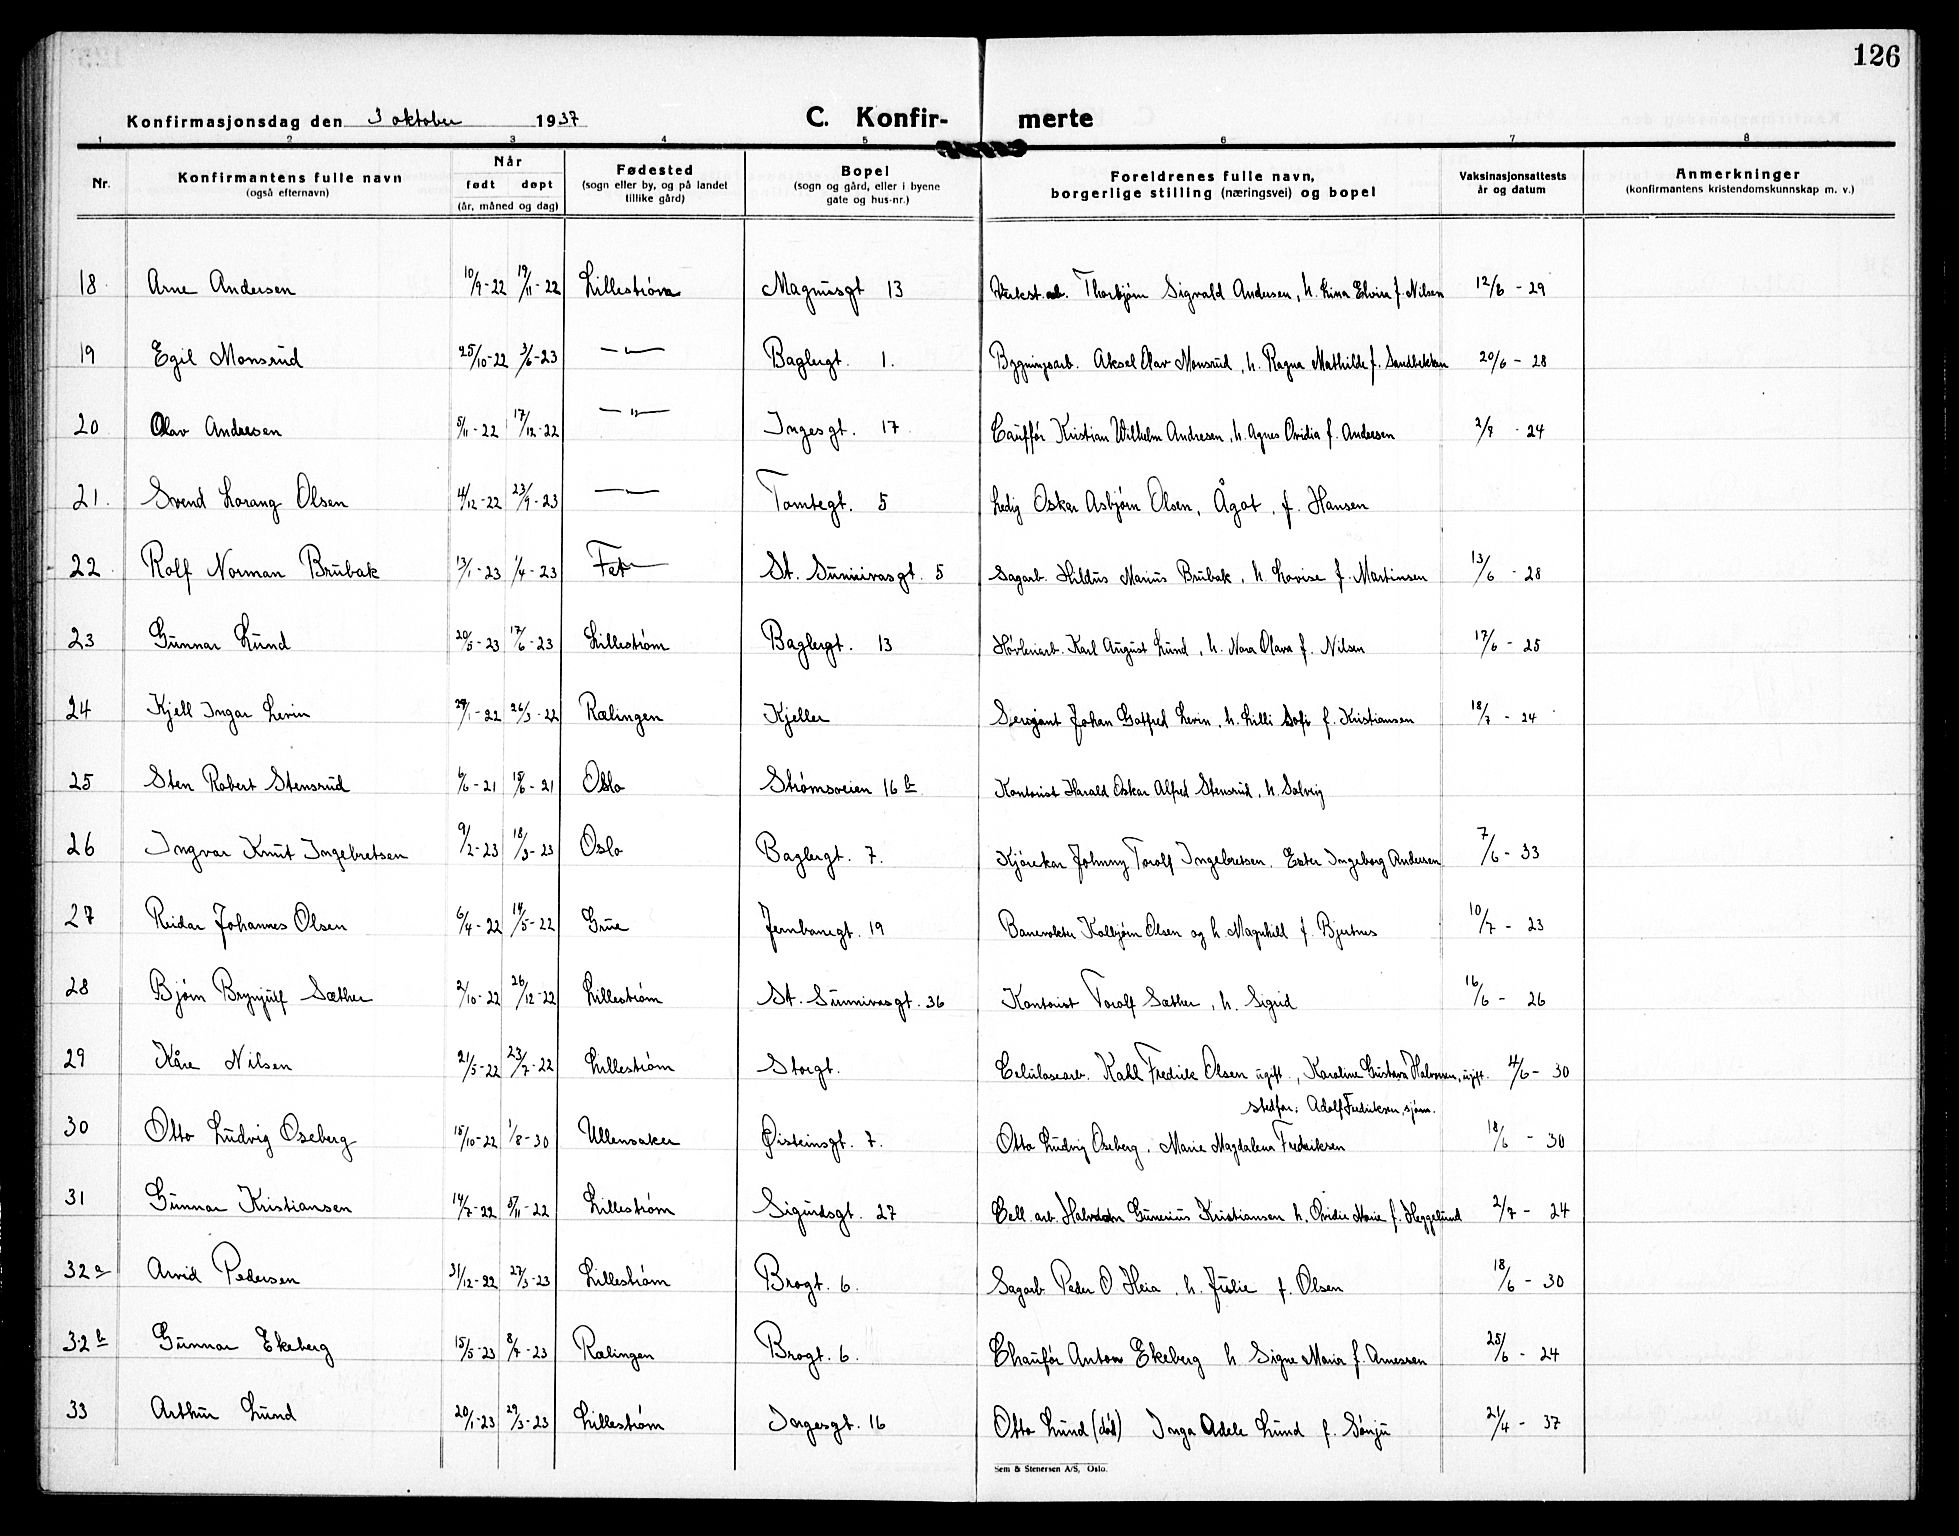 126
Konfirmasjonsdag den 3 oktober 1937 C. Konfir- merte
1 2 3 4 5 6 7 8
Nr. Konfirmantens fulle navn (også efternavn) Når født døpt (år, måned og dag) Fødested (sogn eller by, og på landet tillike gård) Bopel (sogn og gård, eller i byene gate og hus-nr.) Foreldrenes fulle navn, borgerlige stilling (næringsvei) og bopel Vaksinasjonsattests år og datum Anmerkninger (konfirmantens kristendomskunnskap m. v.)
18 Arne Andersen 10/9-22 19/11-22 Lillestrøm Magnusgt 13 Verkst.arb. Thorbjørn Sigvald Andersen, h. Lina Elvira f. Nilsen 12/6 - 29
19 Egil Monsrud 25/10-22 3/6-23 —"— Baglergt. 1. Bygningsarb. Aksel Olav Monsrud, h. Ragna Mathilde f. Sandbekken 20/6 - 28
20 Olav Andresen 5/11-22 17/12-22 —"— Ingesgt. 17 Cauffør Kristian Wilhelm Andresen, h. Agnes Ovidia f. Andresen 2/7 - 24
21. Svend Lorang Olsen 4/12-22 23/9-23 —"— Tomtegt. 5 Ledig Oskar Asbjørn Olsen, Ågot, f. Hansen
22. Rolf Norman Brubak 13/1-23 1/4-23 Fet St. Sunnivasgt. 5 Sagarb. Hildus Marius Brubak, h. Lovise f. Martinsen 13/6 - 28
23 Gunnar Lund 20/5-23 17/6-23 Lillestrøm Baglergt. 13 Høvleriarb. Karl August Lund, h. Nora Olava f. Nilsen 17/6 - 25
24 Kjell Ingar Levin 29/1-22 26/3-22 Rælingen Kjeller Sersjant Johan Gotfred Levin, h. Lilli Sofi f. Kristiansen 18/7 - 24
25 Sten Robert Stensrud 6/6-21 15/6-21 Oslo Strømsveien 16 b Kontorist Harald Oskar Alfred Stensrud, h. Solveig
26 Ingvar Knut Ingebretsen 9/2-23 18/3-23 Oslo Baglergt. 7. Kjørekar Johnny Torolf Ingebretsen. Ester Ingeborg Andersen 7/6 - 33
27 Reidar Johannes Olsen 6/4-22 14/5-22 Grue Jernbanegt. 19 Banevokter Kolbjørn Olsen og h. Magnhill f. Bjertnes 10/7 - 23
28 Bjørn Brynjulf Sæther 2/10-22 26/12-22 Lillestrøm St. Sunnivasgt. 36 Kontorist Torolf Sæther, h. Sigrid 16/6 - 26
29 Kåre Nilsen 21/5-22 23/7-22 Lillestrøm Storgt. Celulosearb. Kahl Fredrik Olsen ugift., Karoline Gustava Halvorsen, ugift. 4/6 - 30
stedfar: Adolf Fredriksen, sjøm.
30 Otto Ludvig Oseberg 15/10-22 1/8-30 Ullensaker Øisteinsgt. 7. Otto Ludvig Oseberg, Marie Magdalena Fredriksen 18/6 - 30
31 Gunnar Kristiansen 14/7-22 5/11-22 Lillestrøm Sigurdsgt. 27 Cell. arb. Halvdan Gunerius Kristiansen h. Ovidie Marie f. Heggelund 2/7 - 24
32 a Arvid Pedersen 31/12-22 27/3-23 Lillestrøm Brogt. 6. Sagarb Peder O Heia, h. Julie f. Olsen 18/6 - 30
32 b Gunnar Ekeberg 15/5-23 8/7-23 Rælingen Brogt. 6. Chaufør Anton Ekeberg h Signe Maria f. Arnessen 25/6 - 24
33 Arthur Lund 20/1-23 29/3-23 Lillestrøm Ingesgt. 16 Otto Lund (død) Inga Adele Lund f. Sønju 21/4 - 37
Sem & Stenersen A/S, Oslo.